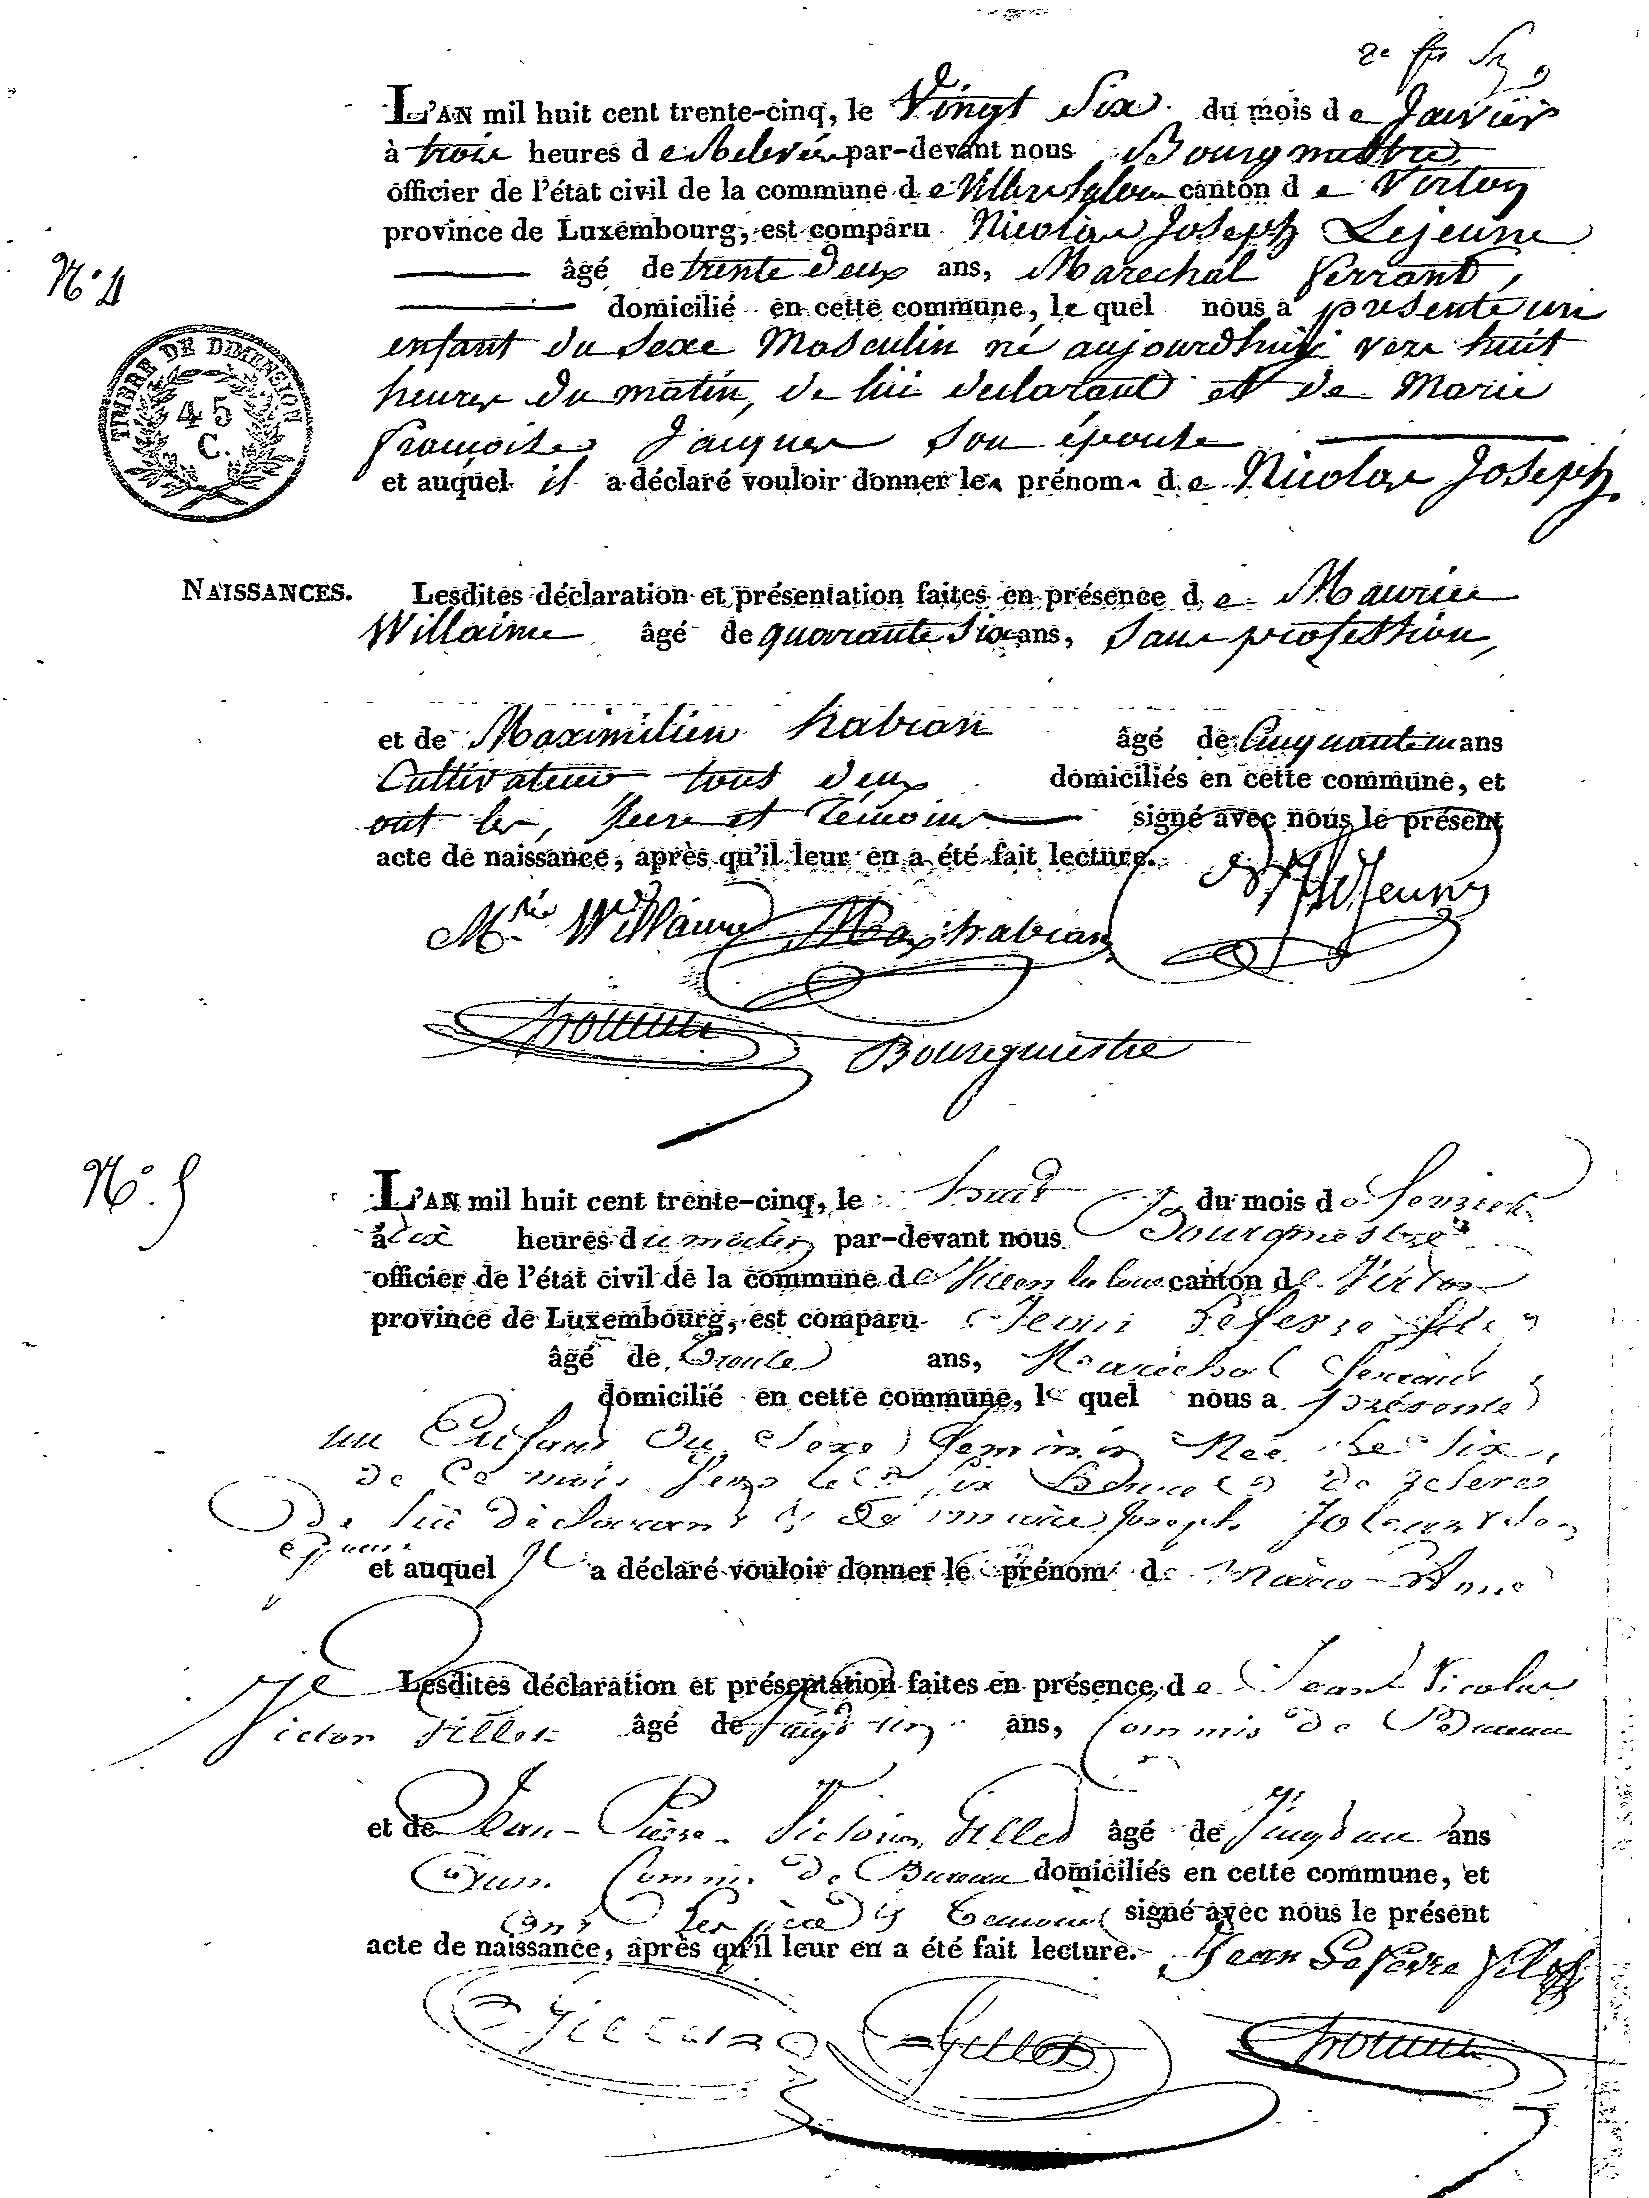 2e
L'AN mil huit cent trente-cinq, le Vingt Six du mois de Janvier
à trois heures de Relevée par-devant nous Bourgmestre
officier de l'état civil de la commune de Villers la loue canton de Virton
province de Luxembourg, est comparu Nicolas Joseph Lejeune
âgé de trente deux ans, Marechal ferrant,
N° 4
domicilié en cette commune, le quel nous a presenté un
enfant du Sexe Masculin né aujourdhuy vers huit
heures du matin, de lui declarant et de Marie
TIMBRE DE DIMENSION
45
C.
françoise Jaques son épouse
et auquel il a déclaré vouloir donner les prénoms de Nicolas Joseph.
NAISSANCES. Lesdites déclaration et présentation faites en présence de Maurice
Willaime âgé de quarante six ans, Sans profession,
et de Maximilien habran âgé de Cinquante un ans
Cultivateur tous deux domiciliés en cette commune, et
ont les, pere et témoins signé avec nous le présent
acte de naissance, après qu'il leur en a été fait lecture.
Lejeune
Mce Willaime Max habran
Bourgmestre
N° 5
L'AN mil huit cent trente-cinq, le huit du mois de fevrier
à dix heures du matin par-devant nous Bourgmestre
officier de l'état civil de la commune de Villers la loue canton de Virton
province de Luxembourg, est comparu Jean Lefevre fils
âgé de trente ans, Marechal ferrant,
domicilié en cette commune, le quel nous a présenté
un Enfant du Sexe feminin Née Le Six,
de Ce mois vers les six heures de relevée
De lui déclarant et de marie joseph son
épouse
et auquel il a déclaré vouloir donner le prénom de Marie-Anne
Lesdites déclaration et présentation faites en présence de Jean Nicolas
Victor Gillet âgé de vingt ans, Commis de Bureau
et de Jean-Pierre Victorin Gillet âgé de Vingt un ans
aussi Commis de Bureau domiciliés en cette commune, et
Ont les père et témoins signé avec nous le présent
acte de naissance, après qu'il leur en a été fait lecture. Jean Lefevre fils
Gillet